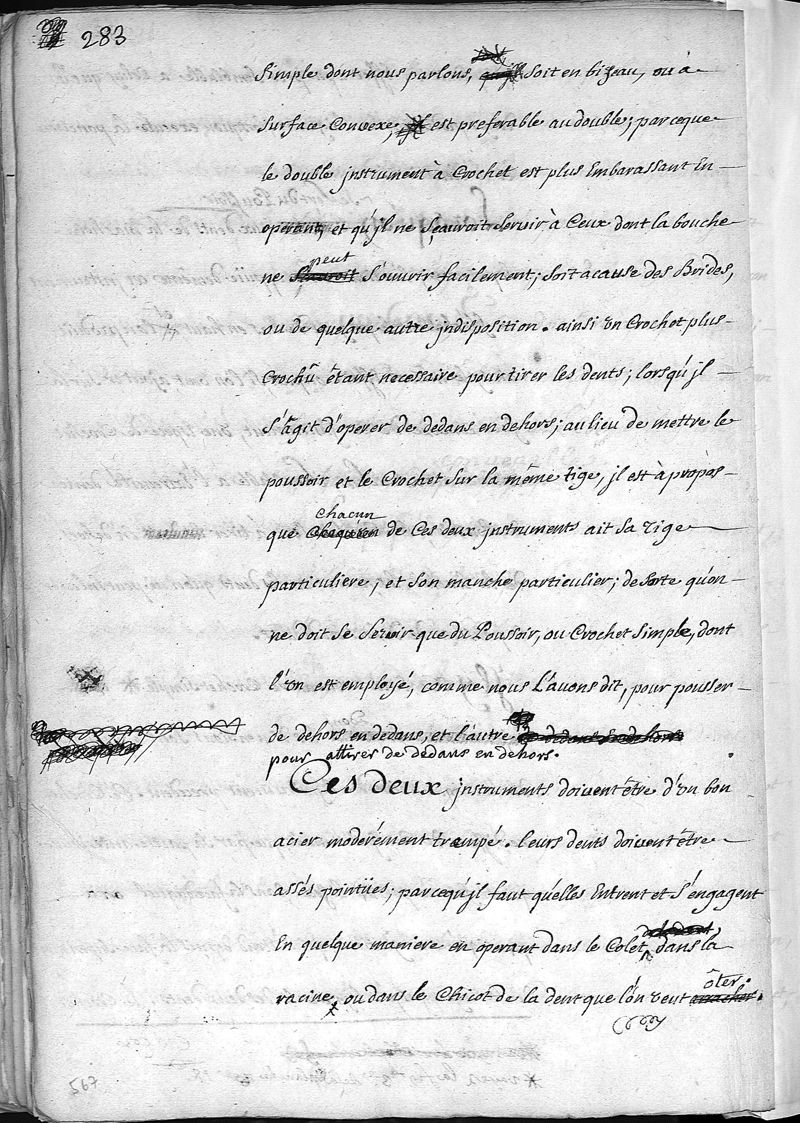 283
Simple dont nous parlons, soit en bizeau, ou à
surface Convexe, est preferable au double; parceque
le double jnstrument à Crochet est plus Embarassant En
operant, et qu'jl ne sçauroit servir à Ceux dont la bouche
peut
ne sçauroit s'ouvrir facilement; soit acause des Brides,
ou de quelque autre jndisposition. ainsi un Crochet plus
Crochû êtant necessaire pour tirer les dents; lorsqu'jl
s'âgit d'operer de dedans en dehors; au lieu de mettre le
poussoir et le Crochet sur la même tige, jl est à propos
chacun
que de Ces deux jnstruments ait sa tige
particuliere; et son manche particulier; de sorte qu'on
ne doit se servir que du Poussoir, ou Crochet simple, dont
l'un est employé, comme nous L'avons dit, pour pousser
de dehors en dedans, et l'autre de dedans en dehors
pour attirer de dedans en dehors.
Ces deux jnstruments doivent être d'un bon
acier modérément trempé. leurs dents doivent être
assés pointües; parcequ'jl faut qu'elles Entrent et s'engagent
En quelque maniere en operant dans le Colet, dans la
ôter.
racine, ou dans le Chicot de la dent que l'ón veut arracher.
567